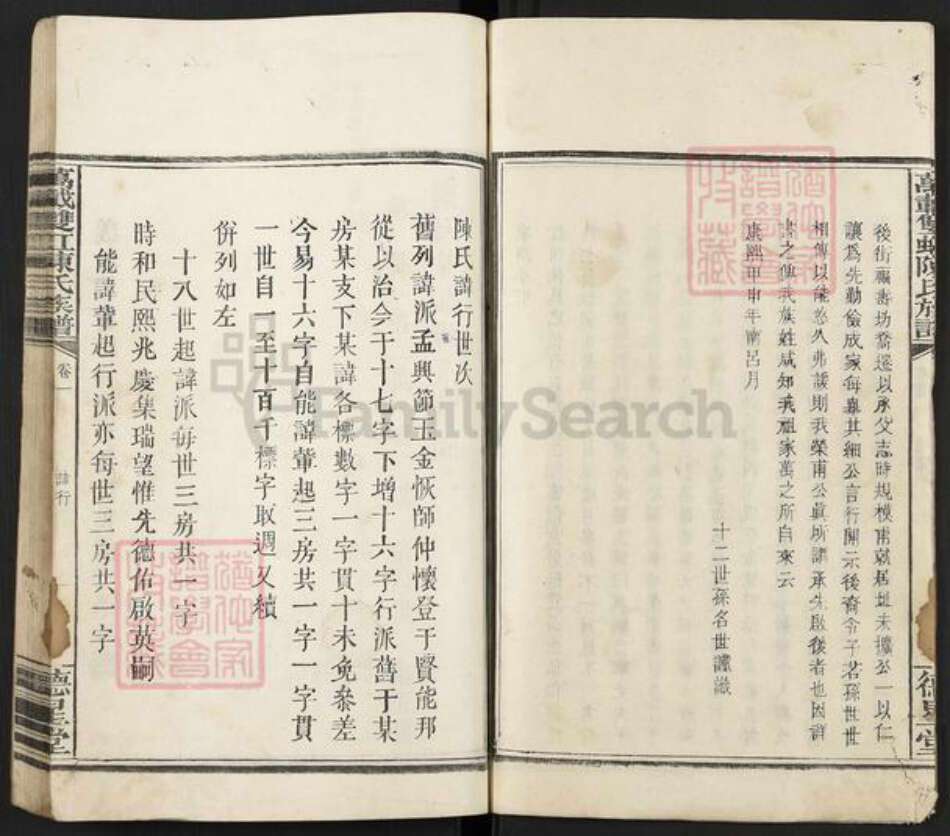 後街 坊喬遷以承父志時規模甫就居址未擴公一以仁
讓爲先勤儉成家每與其細公言行開示後裔令子若孫世世
相傳以能悠久弗諼則我榮甫公眞所謂承先啟後者也因譜
之俾我族姓咸知我祖家萬之所自來云
康熙甲申年南呂月
十二世孫名世謹識
陳氏諱行世次
舊列諱派孟興節玉金恢師仲懷登于賢能邦
從以治今于十七字下增十六字行派舊于某
房某支下某諱各標數字一字貫十未免參差
今易十六字自能諱輩起三房共一字一字貫
一世自一至十百千標字取週又續
併列如左
十八世起諱派每世三房共一字
時和民熙兆慶集瑞望惟先德佑啟英嗣
能諱輩起行派亦每世三房共一字
萬載雙虹陳氏族譜
卷
諱行
德星堂
FamilySearch